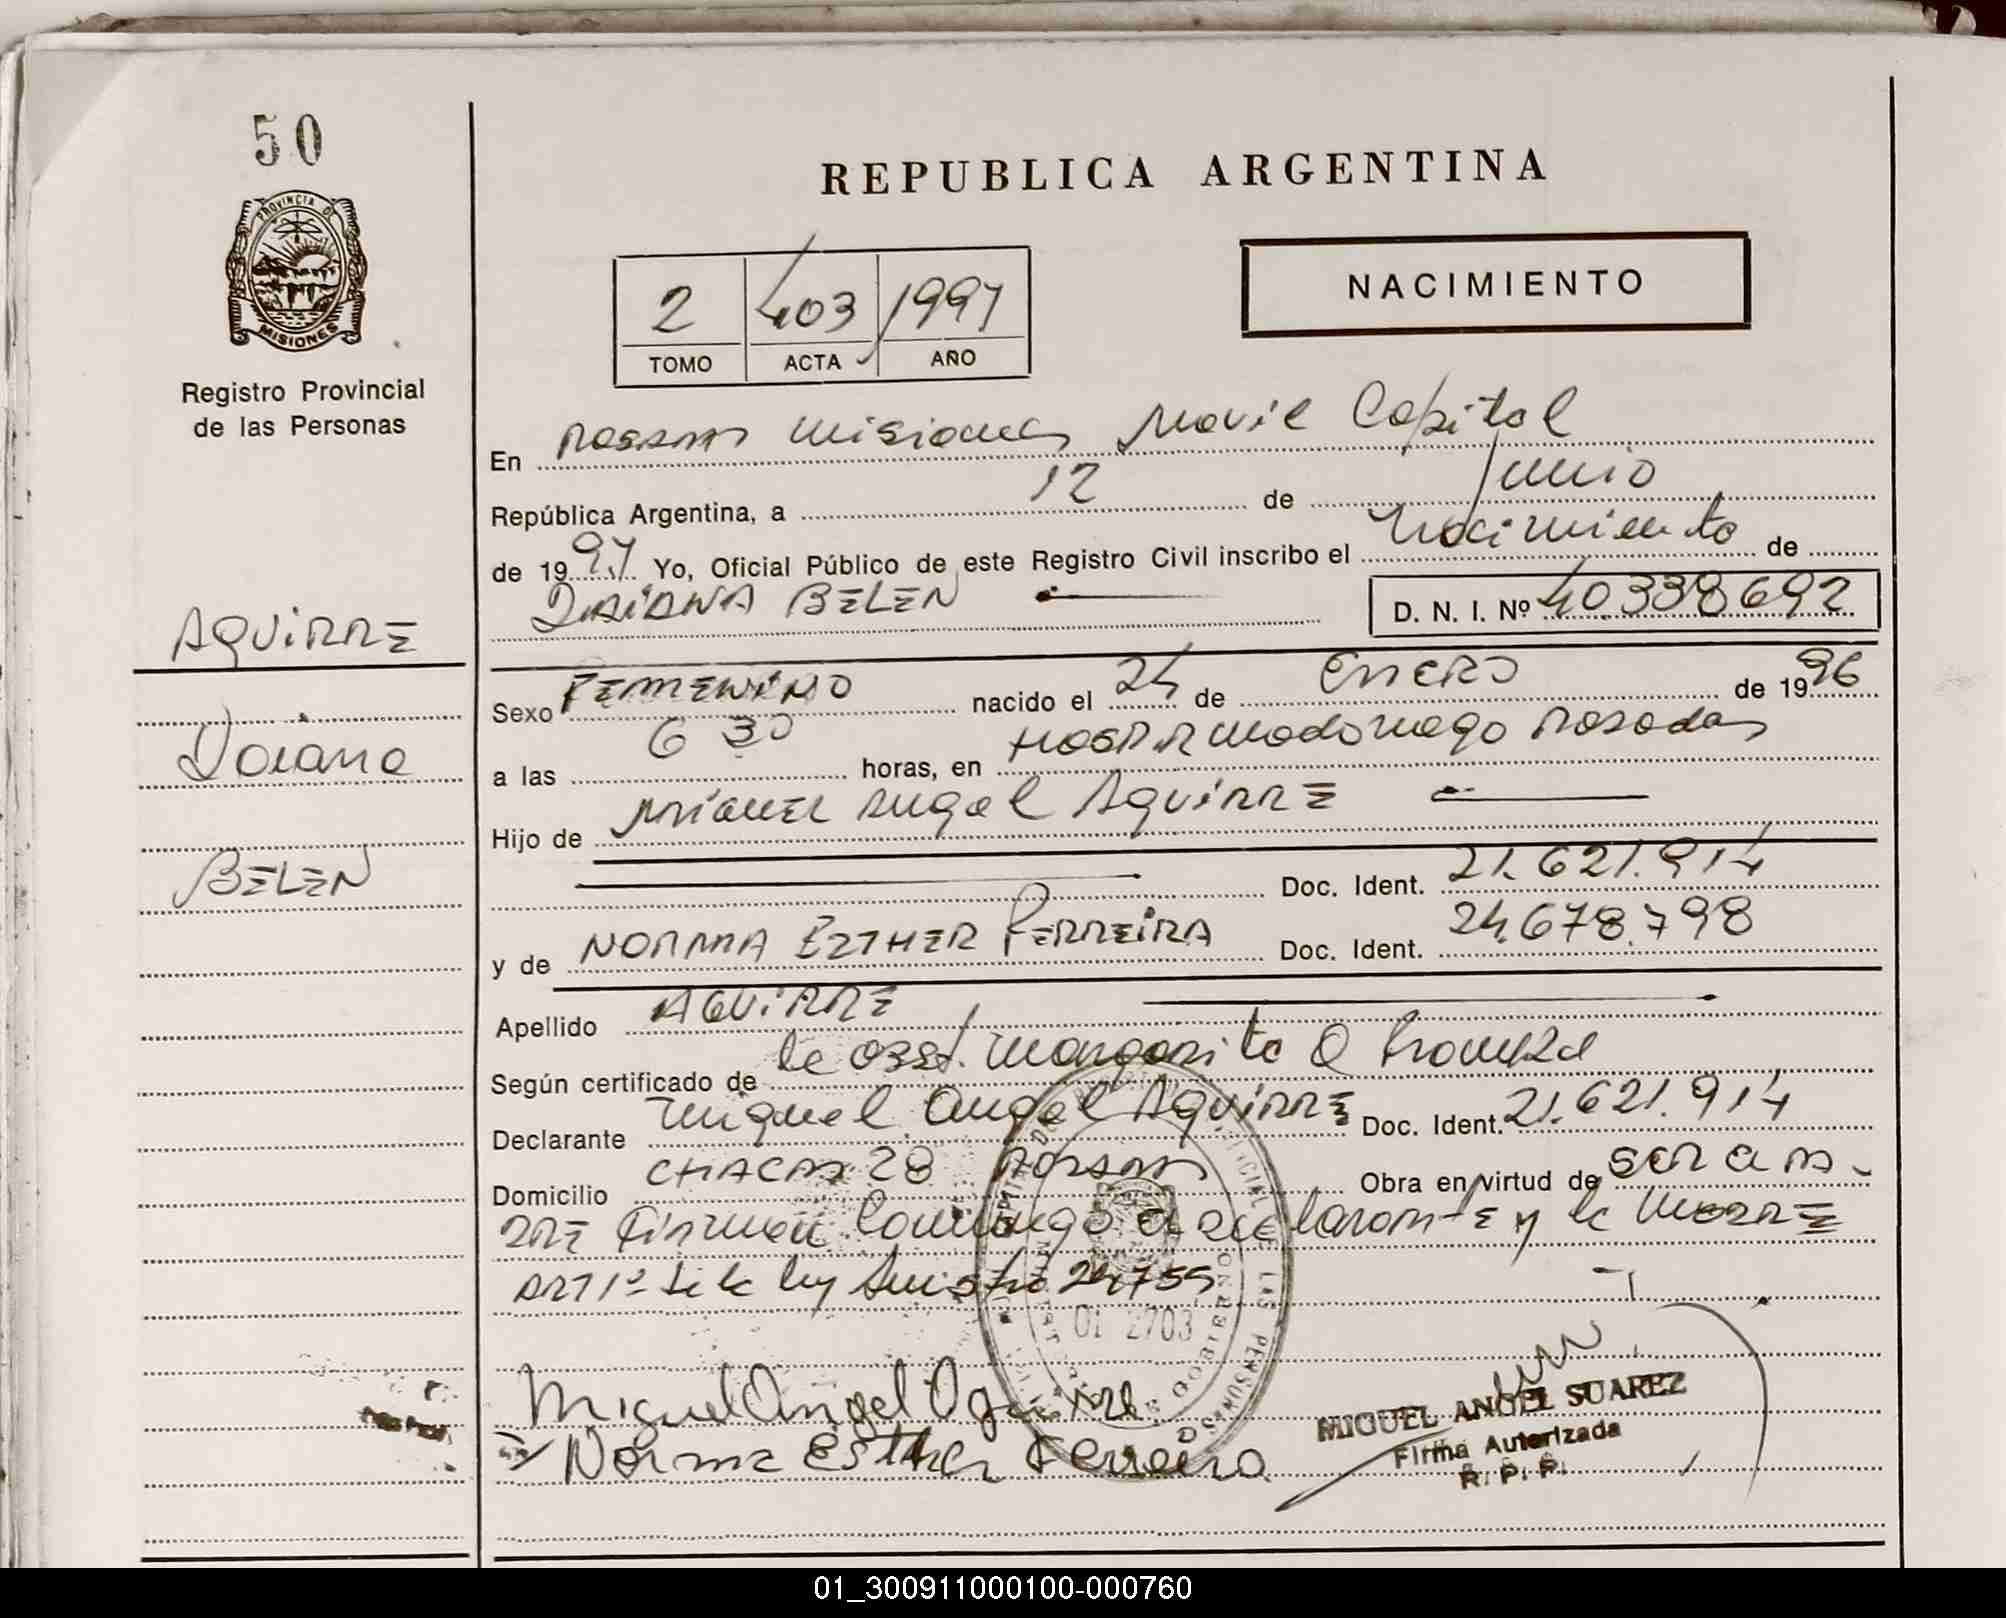 50
PROVINCIA DE
MISIONES
Registro Provincial
de las Personas
REPUBLICA ARGENTINA
NACIMIENTO
2 403 1997
TOMO ACTA AÑO
En Posadas Misiones Movil Capital
República Argentina, a 12 de Junio
de 1997 Yo, Oficial Público de este Registro Civil inscribo el Nacimiento de
DAIANA BELEN D. N. I. Nº 40.338692
AGUIRRE
Daiana
BELEN
Sexo FEMENINO nacido el 24 de ENERO de 1996
a las 6 30 horas, en Hosp R Madariaga Posadas
Hijo de Miguel Angel Aguirre
Doc. Ident. 21.621.914
y de NORMA ESTHER FERREIRA Doc. Ident. 24.678.798
Apellido AGUIRRE
Según certificado de la Obst. Margarita
Declarante Miguel Angel Aguirre Doc. Ident. 21.621.914
Domicilio CHACRA 28 Posadas Obra en virtud de ser a pa-
dre Firman Conmigo el declarante y la Madre
ART 1º de la ley 24755
01 2703
Miguel Angel Aguirre
Norma Esther Ferreira
MIGUEL ANGEL SUAREZ
Firma Autorizada
R. P. P.
01_300911000100-000760